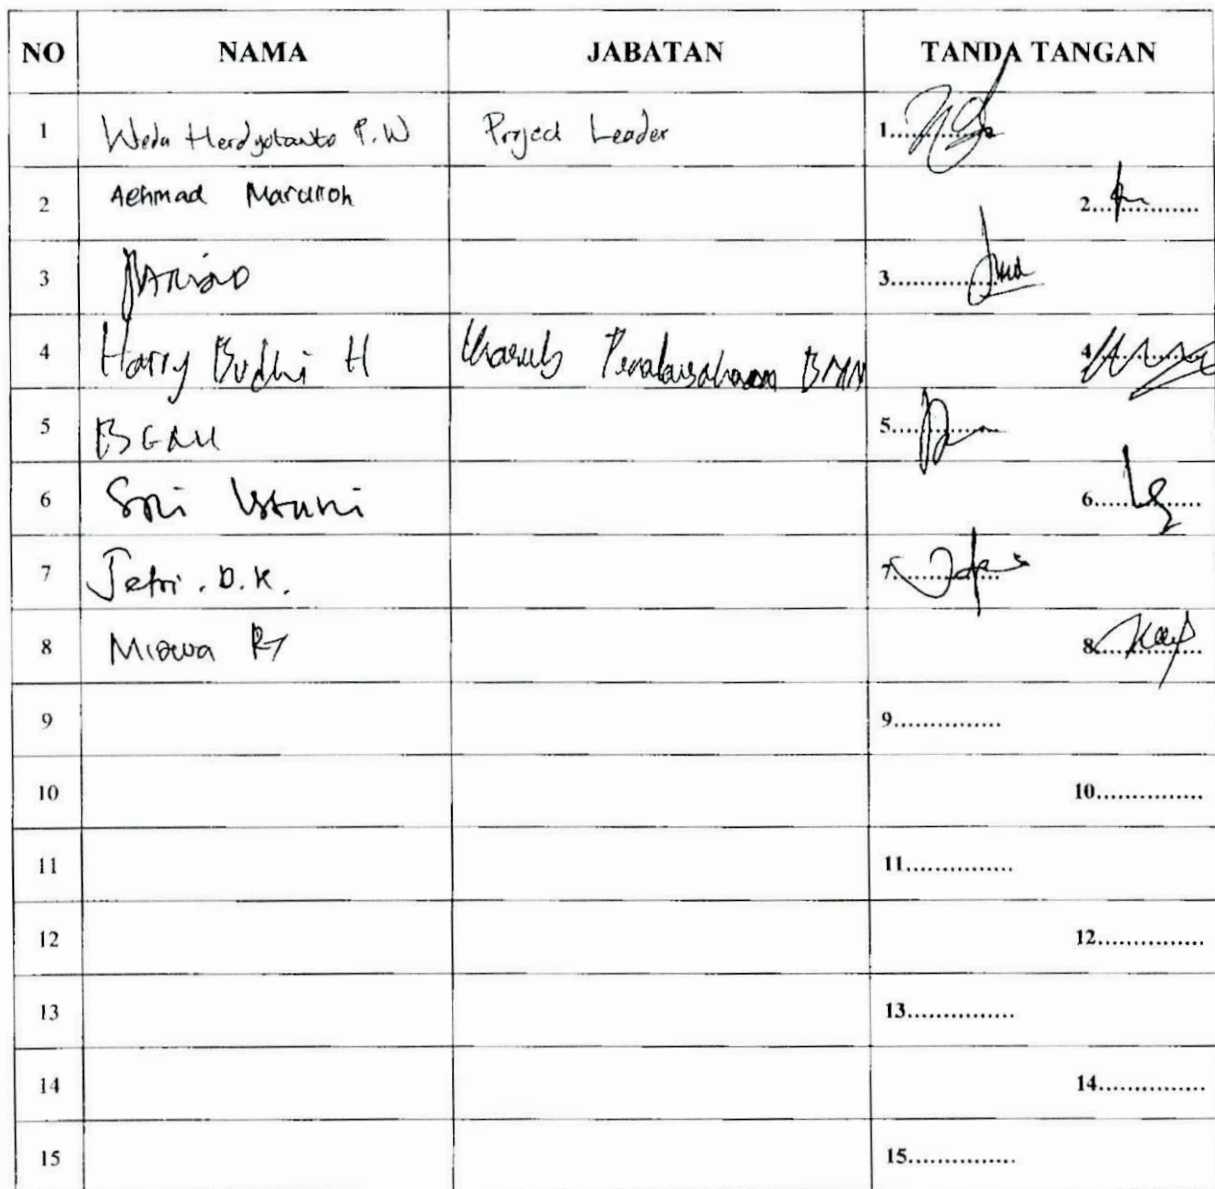 NO NAMA JABATAN TANDA TANGAN
1 Weda Herdyotanto P.W Project Leader 1...............
2 Achmad 2...............
3 3...............
4 Harry Budhi H Penatausahaan BMN 4...............
5 5...............
6 Sri 6...............
7 Jefri . D.K. 7...............
8 8...............
9 9...............
10 10...............
11 11...............
12 12...............
13 13...............
14 14...............
15 15...............